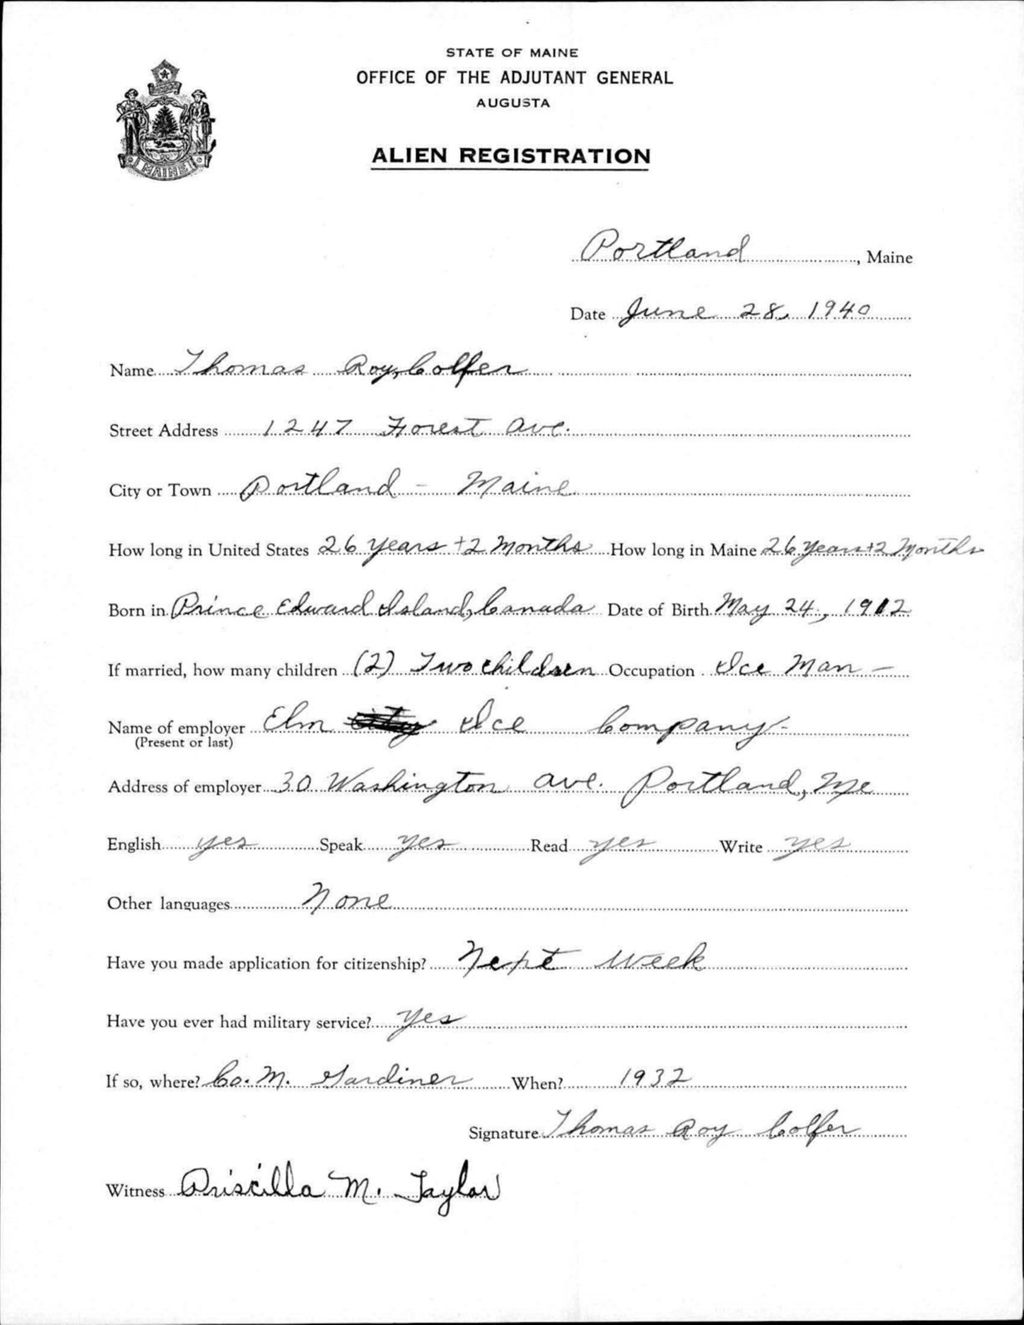 STATE OF MAINE
OFFICE OF THE ADJUTANT GENERAL
AUGUSTA
ALIEN REGISTRATION
MAINE
Portland, Maine
Date June 28, 1940
Name Thomas Roy, Colfer
Street Address 1247 Forest Ave.
City or Town Portland - Maine
How long in United States 26 years + 2 Months How long in Maine 26 years + 2 Months
Born in Prince Edward Island, Canada Date of Birth May 24, 1912
If married, how many children (2) Two children Occupation Ice Man -
Name of employer Elm Ice Company -
(Present or last)
Address of employer 30 Washington ave. Portland, Me
English yes Speak yes Read yes Write yes
Other languages None
Have you made application for citizenship? Next week
Have you ever had military service? Yes
If so, where? Co. M. Gardiner When? 1932
Signature Thomas Roy Colfer
Witness Priscilla M. Taylor